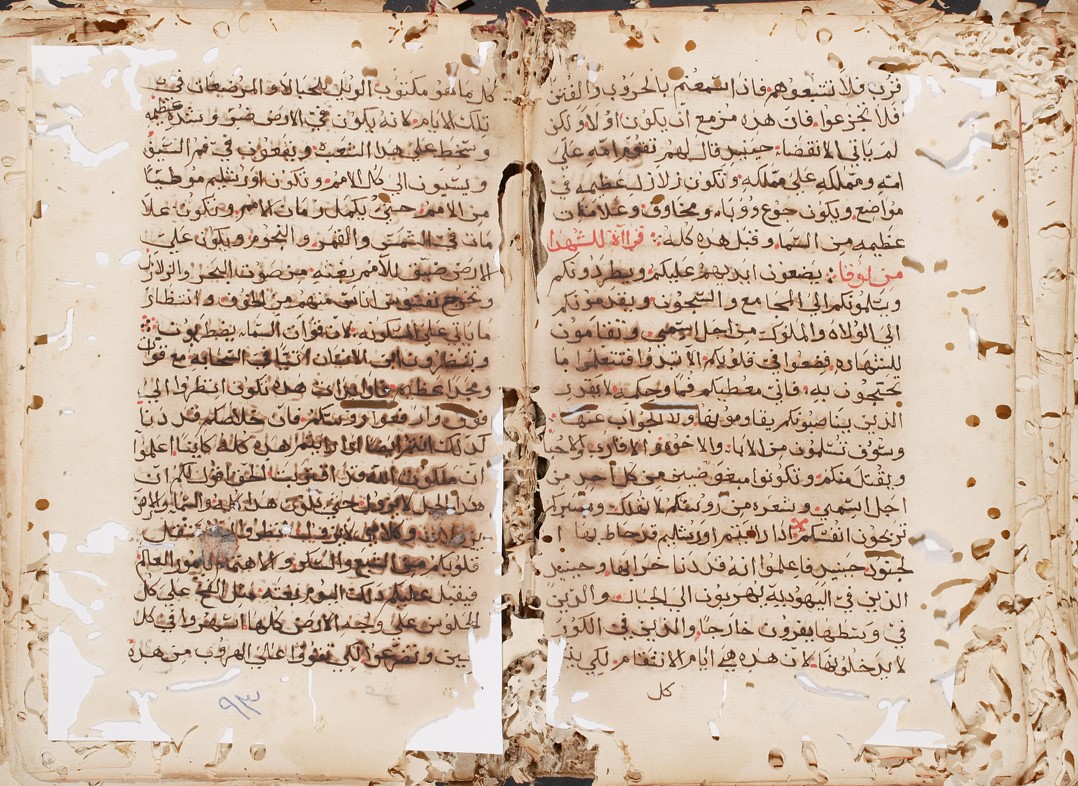 قرب فلا تتبعوهم فاذا سمعتم بالحروب والفتن
فلا تجزعوا فان هذه مزمع ان يكون اولا ولكن
لم ياتي الانقضاء حينيذ قال لهم تقوم امه على
امه ومملكه على مملكه وتكون زلازل عظيمه في
مواضع ويكون جوع ووباء ومخاوف وعلامات
عظيمه من السماء وقبل هذه كله قراآة للشهدا
من لوقا يضعون ايديهم عليكم ويطردونكم
ويسلمونكم الى المجامع والسجون ويقدمونكم
الى الولاه والملوك من اجل اسمي وتقامون
للشهاده فضعوا في قلوبكم الا تبدوا فتتعلموا ما
تحتجون به فاني معطيكم فما وحكمه لا يقدر
الذين يناصبونكم يقاومونها ولا الجواب عنها
وسوف تسلمون من الابا والاخوه والاقارب والاحبا
ويقتل منكم وتكونوا مبغوضين من كل احد من
اجل اسمي وشعره من روسكم لا تهلك وبصبركم
تربحون انفسكم اذا رايتم اورشليم قد حاط بها ا
لجنود حينيذ فاعلموا انه قد دنا خرابها وحينيذ
الذين في اليهوديه يهربون الى الجبال والذين
في وسطها يفرون خارجا والذين في الكور
لا يدخلونها لان هذه هي ايام الانتقام لكي يتم
كل
كل ما هو مكتوب الويل للحبالا والمرضعات في
تلك الايام لانه يكون في الارض ضيق وشده عظيمه
وسخط على هذا الشعب ويقعون في فم السيف
ويسبون الى كل الامم وتكون اورشليم موطيا
من الامم حتي يكمل زمان الامم وتكون علا
مات في الشمس والقمر والنجوم ويكون على
الارض ضيق للامم بغته من صوت البحر والزلازل
وتخرج نفوس اناس منهم من الخوف وانتظار
ما ياتي على المسكونه لان قوات السماء يضطربون
وينظرون ابن الانسان اتيا في السحابه مع قوات
ومجد عظيم فاذا هذه تكون انظروا الى
فوق وارفعوا روسكم فان خلاصكم قد دنا
كذلك انتم ايضا اذا رايتم هذه كله كاينا اعلموا
ان ملكوت الله قد اقتربت الحق اقول لكم ان
هذا الجيل لا يزول حتي يكون هذا كله والسما والارض
يزولان وكلامي لا يزول انظروا لا تثقل
قلوبكم من الشبع والسكر والاهتمام بامور العالم
فيقبل عليكم ذلك اليوم بغته مثل الفخ على كل
الجلوس على وجه الارض كلها اسهروا في كل
حين وتضرعوا لكي تقووا على الهروب من هذه
٩٣